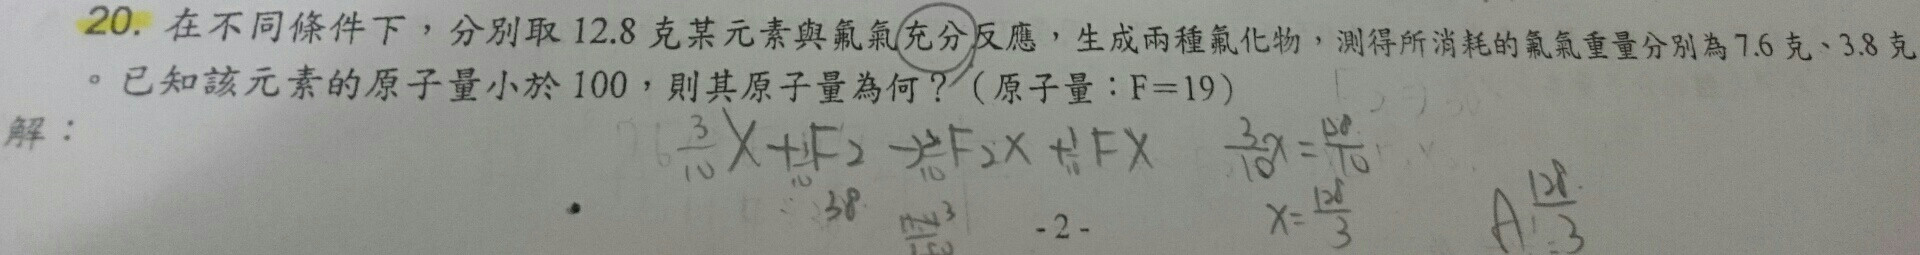 20. 在不同條件下，分別取 12.8 克某元素與氟氣充分反應，生成兩種氟化物，測得所消耗的氟氣重量分別為 7.6 克、3.8 克
。已知該元素的原子量小於 100，則其原子量為何？（原子量：F＝19）
解：
3/10 X + 1/10 F₂ → F₂X + FX 3/10 x = 128/10
38 x = 128/3 A: 128/3
- 2 -